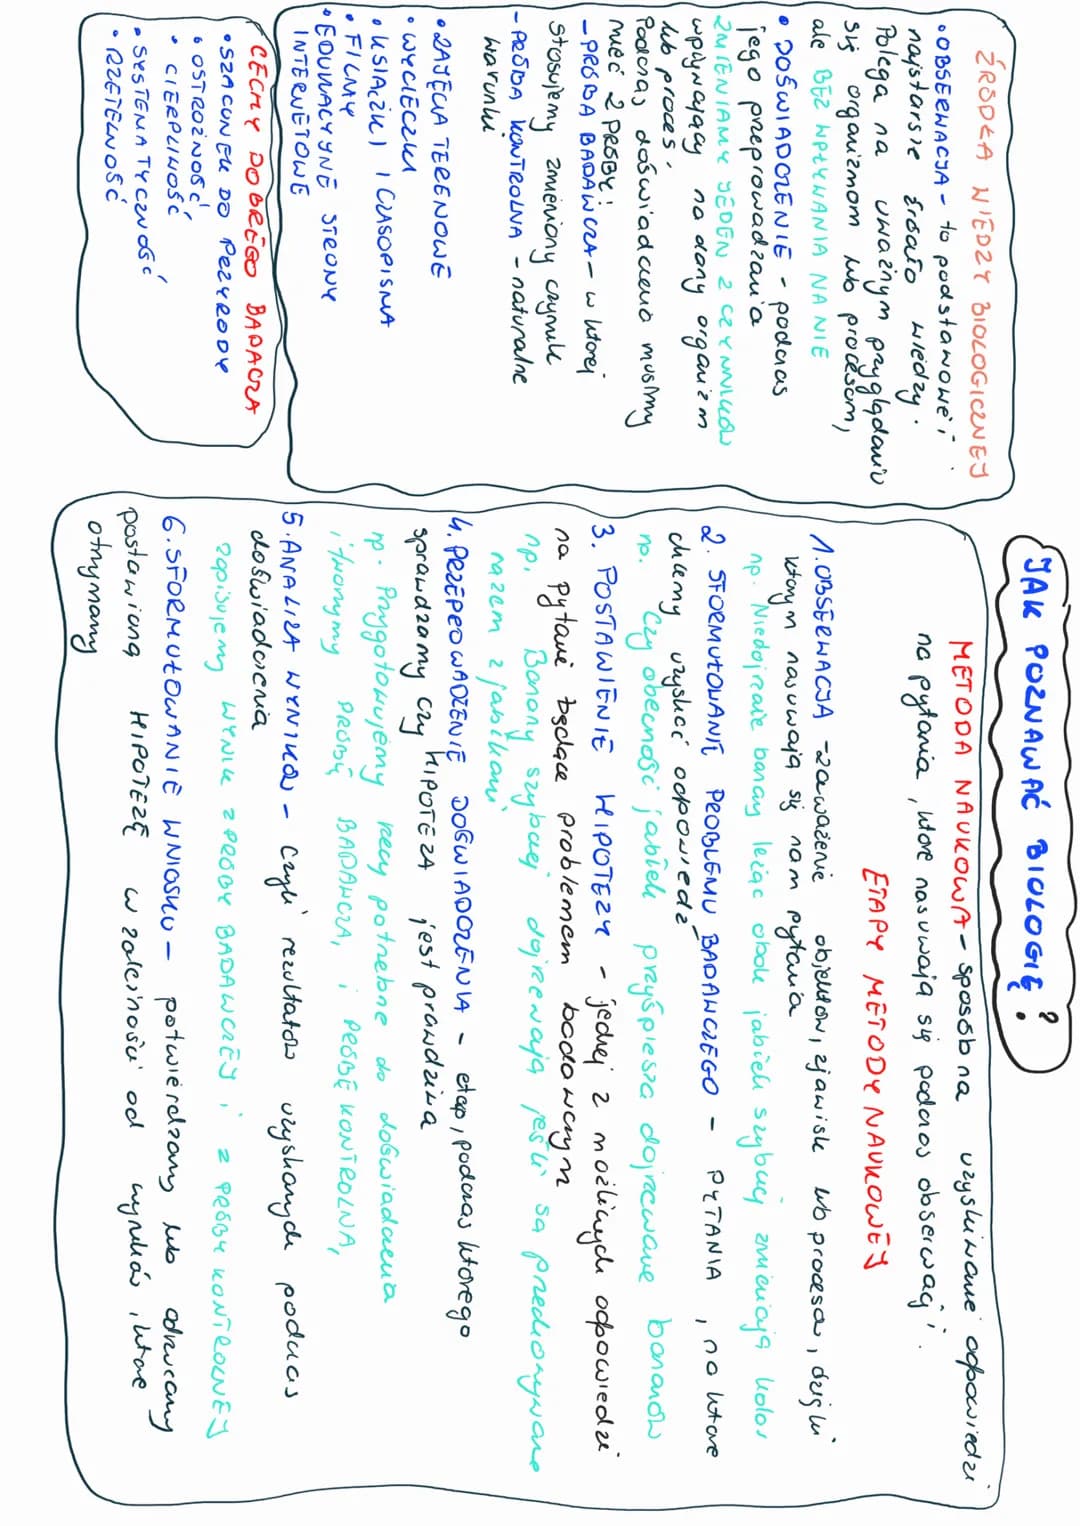 JAK POZNAWAĆ BIOLOGIĘ?
ŹRÓDŁA WIEDZY BIOLOGICZNEJ
• OBSERWACJA - to podstawowe i
najstarsze źródło wiedzy.
Polega na uważnym przyglądaniu
się organizmom lub procesom,
ale BEZ WPŁYWANIA NA NIE
• DOŚWIADCZENIE - podczas
jego przeprowadzania
ZMIENIAMY JEDEN Z CZYNNIKÓW
wpływający na dany organizm
lub proces.
Podczas doświadczenia musimy
mieć 2 PRÓBY:
- PRÓBA BADAWCZA - w której
stosujemy zmieniony czynnik
- PRÓBA KONTROLNA - naturalne
warunki
• ZAJĘCIA TERENOWE
• WYCIECZKI
• KSIĄŻKI I CZASOPISMA
• FILMY
• EDUKACYJNE STRONY
INTERNETOWE
CECHY DOBREGO BADACZA
• SZACUNEK DO PRZYRODY
• OSTROŻNOŚĆ
• CIERPLIWOŚĆ
• SYSTEMATYCZNOŚĆ
• RZETELNOŚĆ
METODA NAUKOWA - sposób na uzyskiwanie odpowiedzi
na pytania, które nasuwają się podczas obserwacji.
ETAPY METODY NAUKOWEJ
1. OBSERWACJA - zauważenie objektów, zjawisk lub procesów, dzięki
którym nasuwają się nam pytania
np. Niedojrzałe banany leżąc obok jabłek szybciej zmieniają kolor
2. SFORMUŁOWANIE PROBLEMU BADAWCZEGO - PYTANIA, na które
chcemy uzyskać odpowiedź
np. Czy obecność jabłek przyśpiesza dojrzewanie bananów
3. POSTAWIENIE HIPOTEZY - jednej z możliwych odpowiedzi
na pytanie będące problemem badawczym
np. Banany szybciej dojrzewają jeśli są przechowywane
razem z jabłkami
4. PRZEPROWADZENIE DOŚWIADCZENIA - etap, podczas którego
sprawdzamy czy HIPOTEZA jest prawdziwa
np. Przygotowujemy rzeczy potrzebne do doświadczenia
i tworzymy PRÓBĘ BADAWCZĄ i PRÓBĘ KONTROLNĄ,
5. ANALIZA WYNIKÓW - czyli rezultatów uzyskanych podczas
doświadczenia
zapisujemy WYNIK Z PRÓBY BADAWCZEJ i Z PRÓBY KONTROLNEJ
6. SFORMUŁOWANIE WNIOSKU - potwierdzamy lub odrzucamy
postawioną HIPOTEZĘ w zależności od wyników, które
otrzymamy